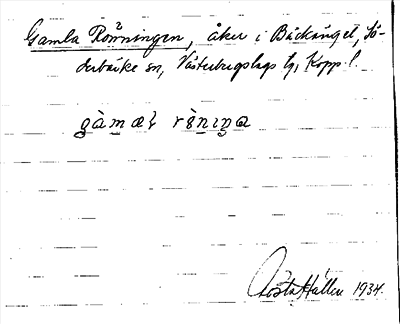 Gamla Rönningen, åker i Bäckänget, Sö-
derbärke sn, Västerbergslags tg, Kopp. l.
gàmał rὰniŋa
Gösta Hallén 1934.